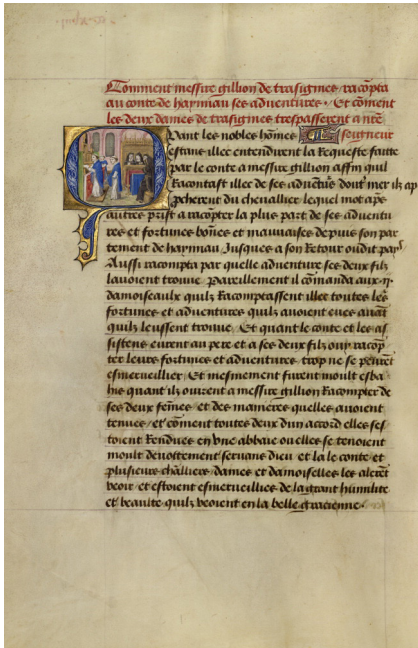 Comment messire gillion de trasignies racõpta
au conte de haynnau ses adventures · Et cõment
les deux dames de trasignies trespasserent a nrẽ
Quant les nobles hõmes seigneur
estans illec entendirent la Requeste faitte
par le conte a messire gillion affin quil
Racontast illec de ses advẽtures dont mer ilz ap
pcherent du chevallier lequel mot aps
autres prist a racõpter la plus part de ses adventu
res et fortunes bõnes et mauvaises depuis son par
tement de haynnau Jusques a son Retour oudit pays
Aussi racompta par quelle adventure ses deux filz
lavoient trouve pareillement il cõmanda aux ·ij·
damoiseaulx quilz Racomptassent illec toutes les
fortunes et adventures quilz avoient eues avãt
quilz leussent trouve · Et quant le conte et les as
sistens eurent au pere et a ses deux filz ouy racõp
ter leurs fortunes et adventures trop ne se peurẽt
esmerveillier / Et mesmement furent moult esba
his quant ilz ouirent a messire gillion Racompter de
ses deux fẽmes / et des manieres quelles avoient
tenues / et cõment toutes deux dun accord elles ses
toient Rendues en vne abbaie ou elles se tenoient
moult devotement servans dieu et la le conte et
plusieurs chãlliers dames et damoiselles les alerẽt
veoir / et estoient esmerveillies de la grant humilite
et beaulte quilz veoient en la belle gracienne ·